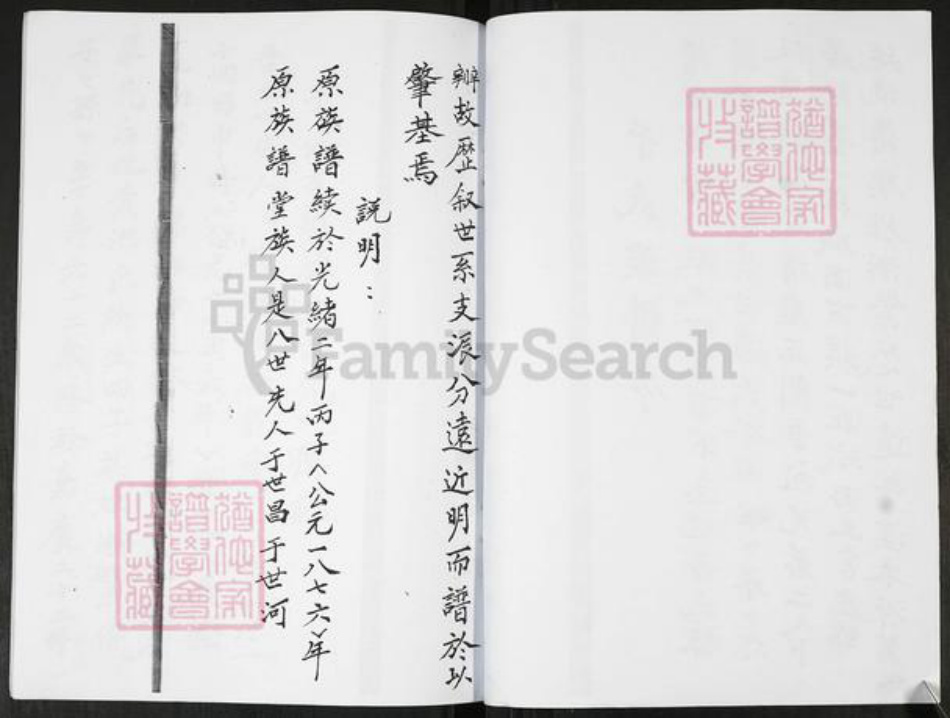 辧故歷叙世系支派分遠近明而譜於以
肇基焉
説明：
原族譜續於光緒二年丙子（公元一八七六年）
原族譜堂族人是八世先人于世昌于世河
猶他家譜學會收藏
猶他家譜學會收藏
FamilySearch